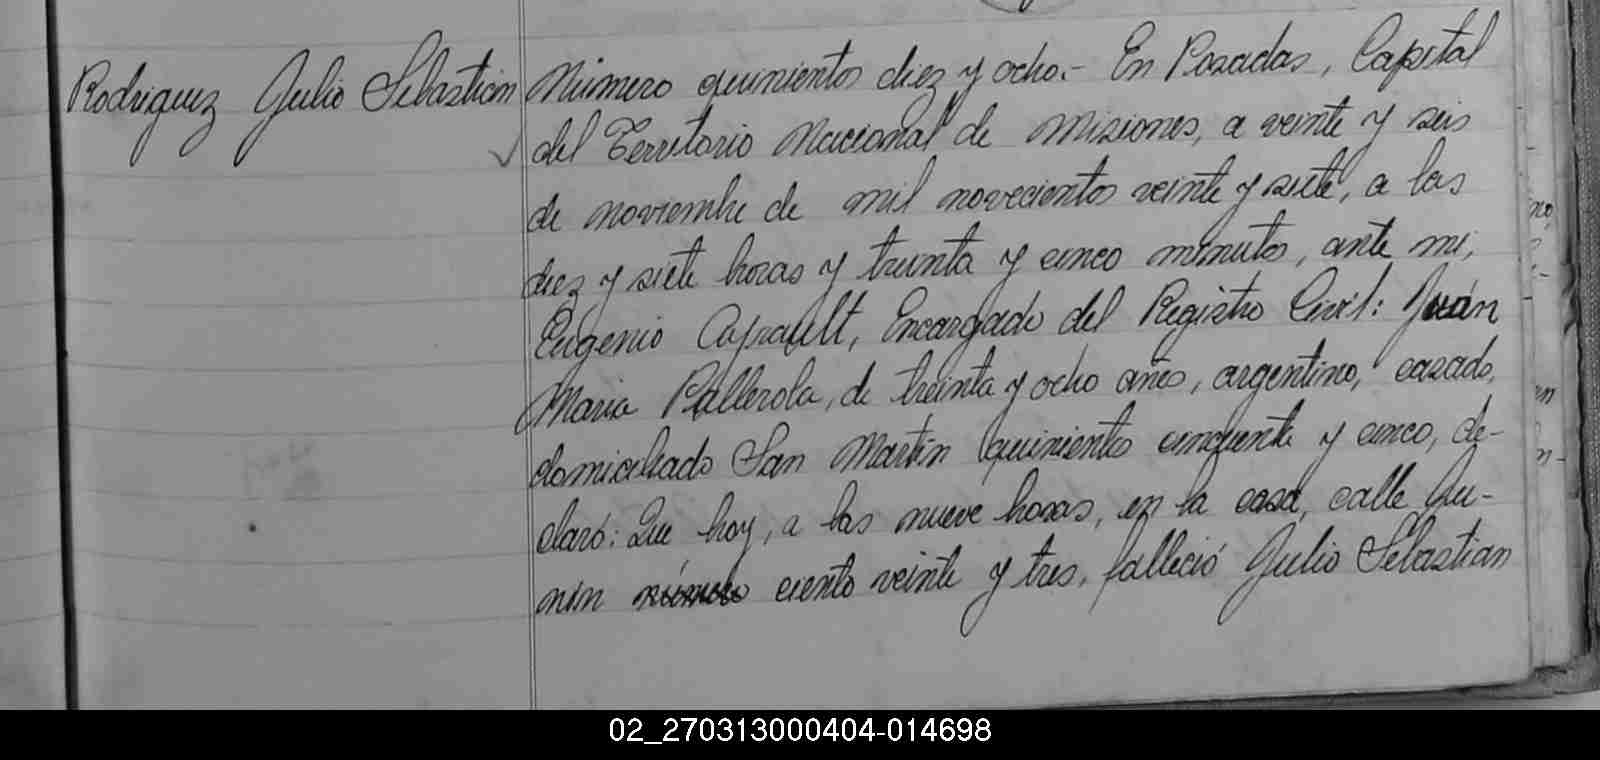 Rodriguez Julio Sebastian
Número quinientos diez y ocho.- En Posadas, Capital
del Territorio Nacional de Misiones, a veinte y seis
de noviembre de mil novecientos veinte y siete, a las
diez y siete horas y treinta y cinco minutos, ante mi,
Eugenio Caprault, Encargado del Registro Civil: Juán
Maria Pallerola, de treinta y ocho años, argentino, casado,
domiciliado San Martin quinientos cincuenta y cinco, de-
claró: Que hoy, a las nueve horas, en la casa, calle Ju-
nin número ciento veinte y tres, falleció Julio Sebastian
02_270313000404-014698